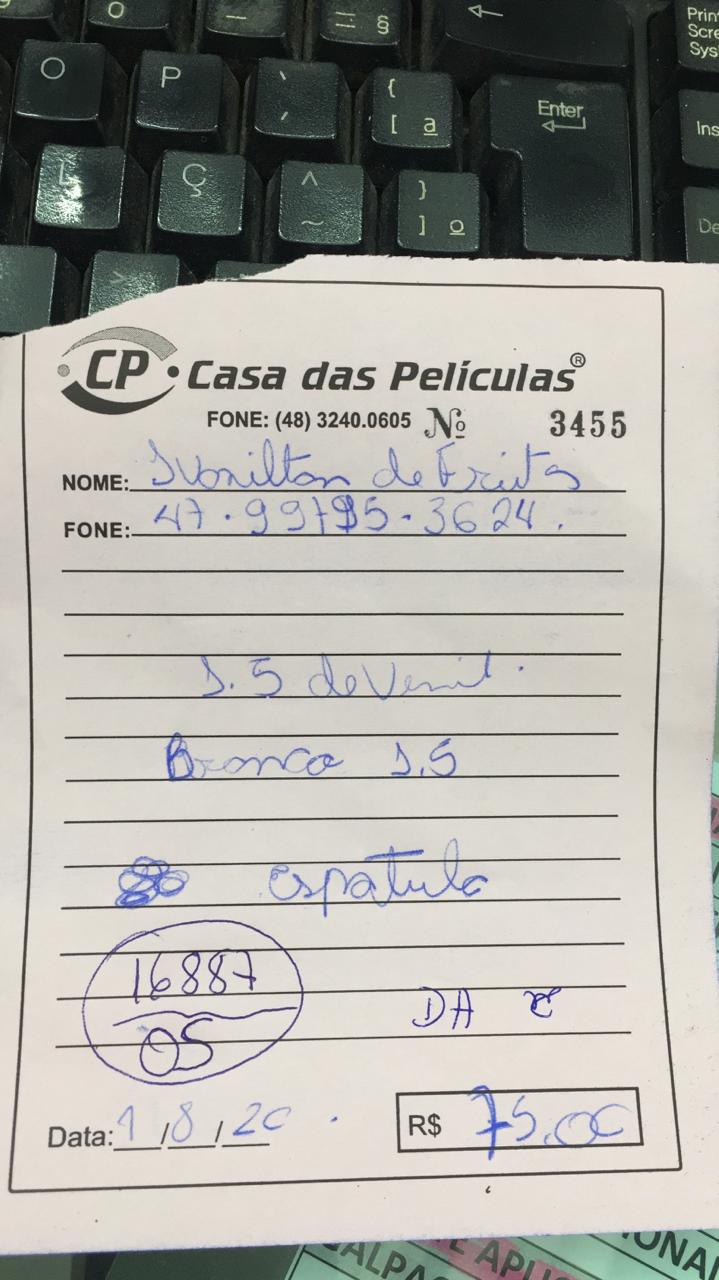 O
-
= §
←
Prin
Scre
Sys
O
P
`
´
{
[ ª
Enter
Ins
L
Ç
^
~
}
] º
De
>
CP Casa das Películas®
FONE: (48) 3240.0605 Nº 3455
NOME: Ivonilton de Freitas
FONE: 47.99795-3624.
1.5 de Vernil.
Branca 1.5
espatula
16887
OS
DA
Data: 1/8/20
R$ 75,00
E APLI
IONAL
GALPA